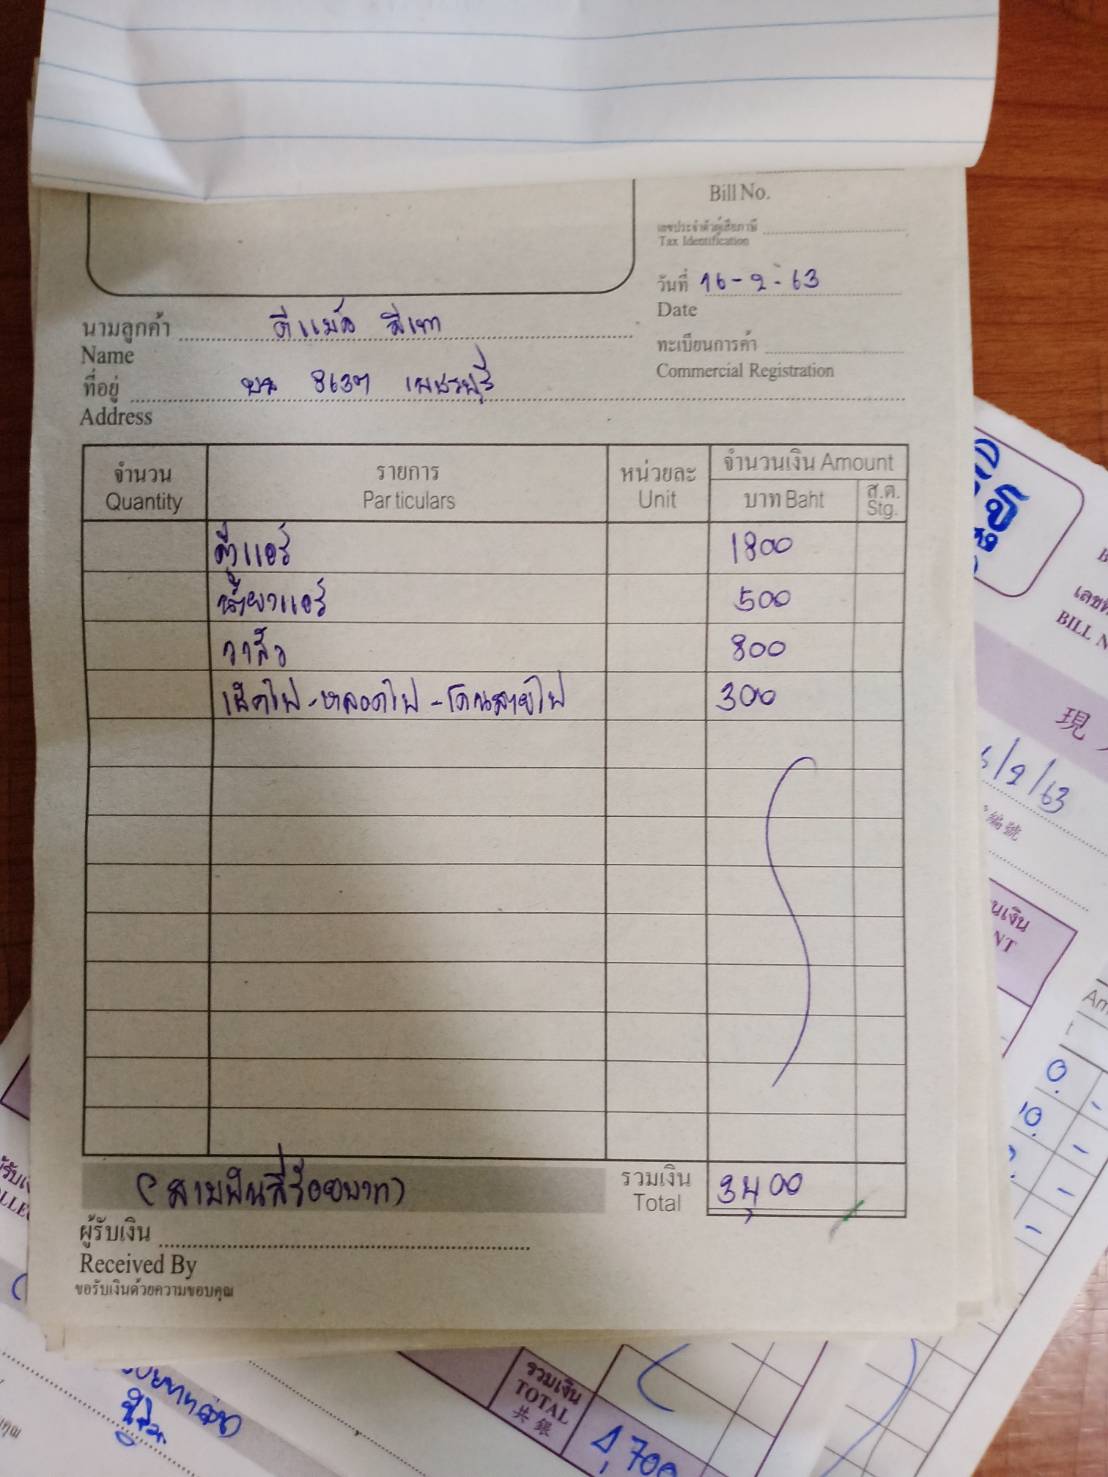 Bill No.
เลขประจำตัวผู้เสียภาษี
Tax Identification
วันที่ 16-2-63
Date
นามลูกค้า
Name
ทะเบียนการค้า
Commercial Registration
ที่อยู่ บน 8637 เพชรบุรี
Address
จำนวน รายการ หน่วยละ จำนวนเงิน Amount
Quantity Particulars Unit บาท Baht ส.ต. Stg.
ตู้แอร์ 1800
น้ำยาแอร์ 500
วาล์ว 800
เช็คไฟ-หลอดไฟ-โคมสายไฟ 300
(สามพันสี่ร้อยบาท) รวมเงิน 3400
Total
ผู้รับเงิน
Received By
ขอรับเงินด้วยความขอบคุณ
BILL
現
/2/63
編號
นเงิน
NT
รวมเงิน
TOTAL
共銀
4,700